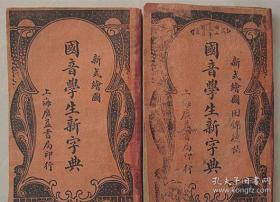 新式繪圖
國音學生新字典
上海廣益書局印行
新式繪圖
國音學生新字典
上海廣益書局印行
孔夫子旧书网